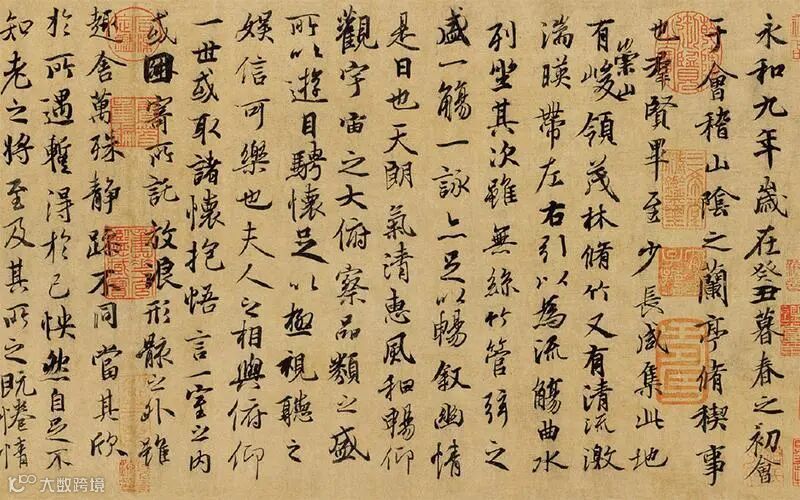 永和九年歲在癸丑暮春之初會
于會稽山陰之蘭亭脩稧事
也羣賢畢至少長咸集此地
有崇山峻領茂林脩竹又有清流激
湍暎帶左右引以為流觴曲水
列坐其次雖無絲竹管弦之
盛一觴一詠亦足以暢敘幽情
是日也天朗氣清惠風和暢仰
觀宇宙之大俯察品類之盛
所以遊目騁懷足以極視聽之
娛信可樂也夫人之相與俯仰
一世或取諸懷抱悟言一室之內
或因寄所託放浪形骸之外雖
趣舍萬殊靜躁不同當其欣
於所遇蹔得於己怏然自足不
知老之將至及其所之既惓情
大数跨境